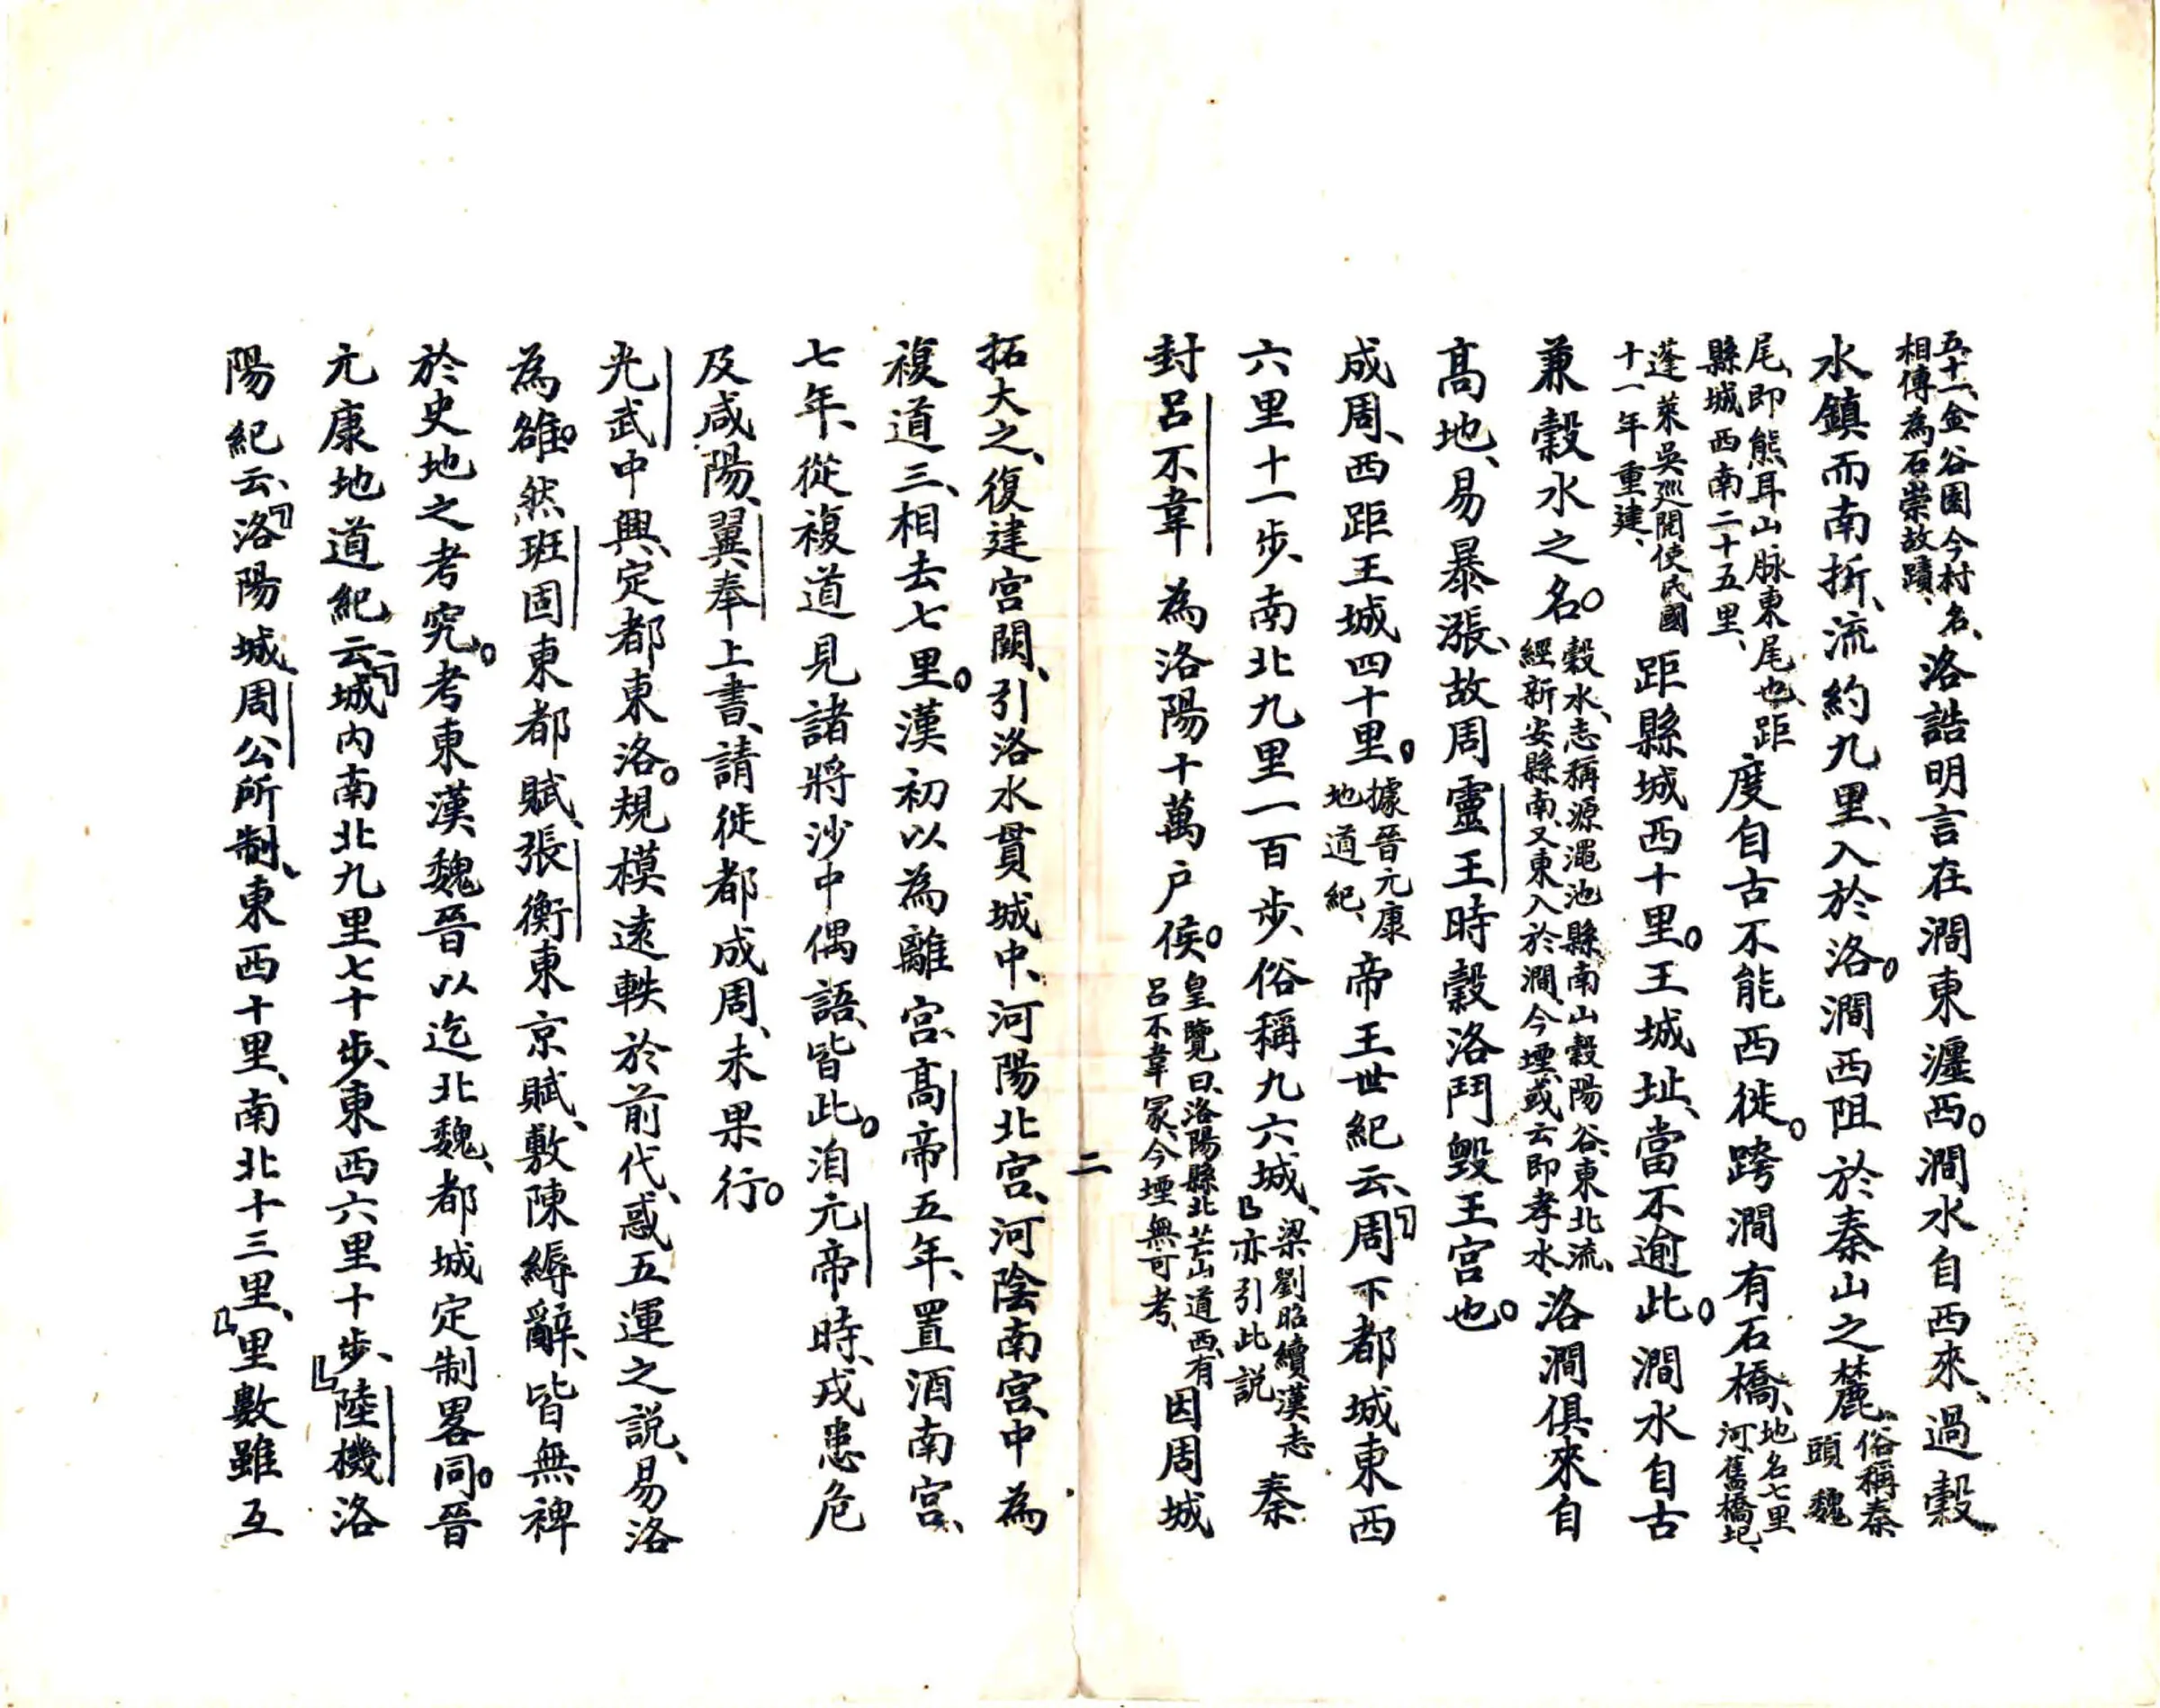 五十一、金谷園今村名、相傳為石崇故蹟、洛誥明言在澗東瀍西。澗水自西來、過穀
水鎮而南折、流約九里、入於洛。澗西阻於秦山之麓、俗稱秦頭魏
尾、即熊耳山脉東尾也、距縣城西南二十五里、度自古不能西徙。跨澗有石橋、地名七里河舊橋圮、
蓬萊吳巡閱使民國十一年重建、距縣城西十里。王城址、當不逾此。澗水自古
兼穀水之名。穀水、志稱源澠池縣南山穀陽谷、東北流、經新安縣南、又東入於澗、今堙、或云即孝水、洛澗俱來自
高地、易暴漲、故周靈王時穀洛鬥毀王宮也。
成周、西距王城四十里。據晉元康地道紀、帝王世紀云、「周下都城東西
六里十一步、南北九里一百步、俗稱九六城、」梁劉昭續漢志亦引此說秦
封呂不韋為洛陽十萬户侯。皇覽曰、洛陽縣北芒山道西、有呂不韋冢、今堙無可考、因周城
二
拓大之、復建宮闕、引洛水貫城中、河陽北宮、河陰南宮、中為
複道三、相去七里。漢初以為離宮、高帝五年、置酒南宮、
七年、從複道見諸將沙中偶語、皆此。洎元帝時、戎患危
及咸陽、翼奉上書、請徙都成周、未果行。
光武中興、定都東洛。規模遠軼於前代、惑五運之說、易洛
為雒。然班固東都賦、張衡東京賦、敷陳縟辭、皆無裨
於史地之考究。考東漢魏晉以迄北魏、都城定制畧同。晉
元康地道紀云、「城內南北九里七十步、東西六里十步、」陸機洛
陽紀云、「洛陽城、周公所制、東西十里、南北十三里、」里數雖互